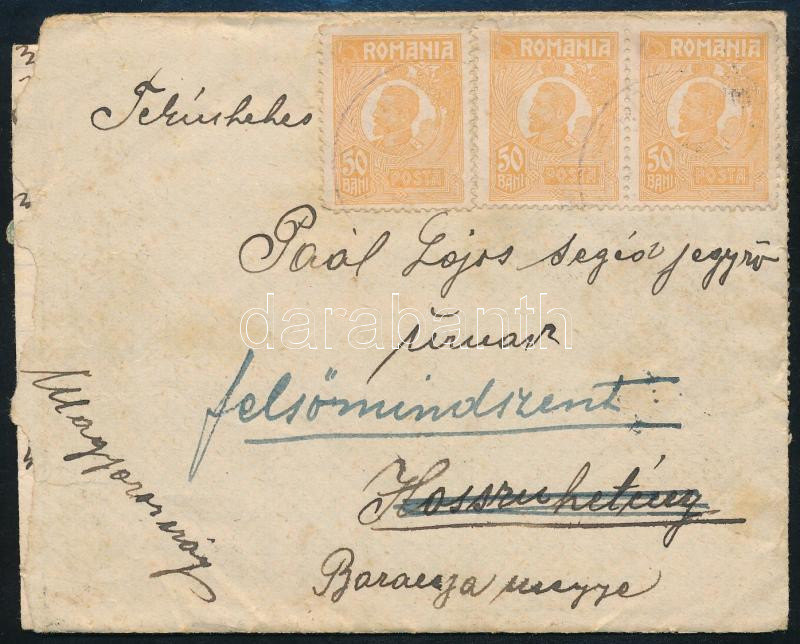 ROMANIA ROMANIA ROMANIA
50 BANI POSTA 50 BANI POSTA 50 BANI POSTA
Paál Lajos segéd jegyző
úrnak
felsőmindszent
Hosszuhetény
Baranya megye
Magyarország
darabanth